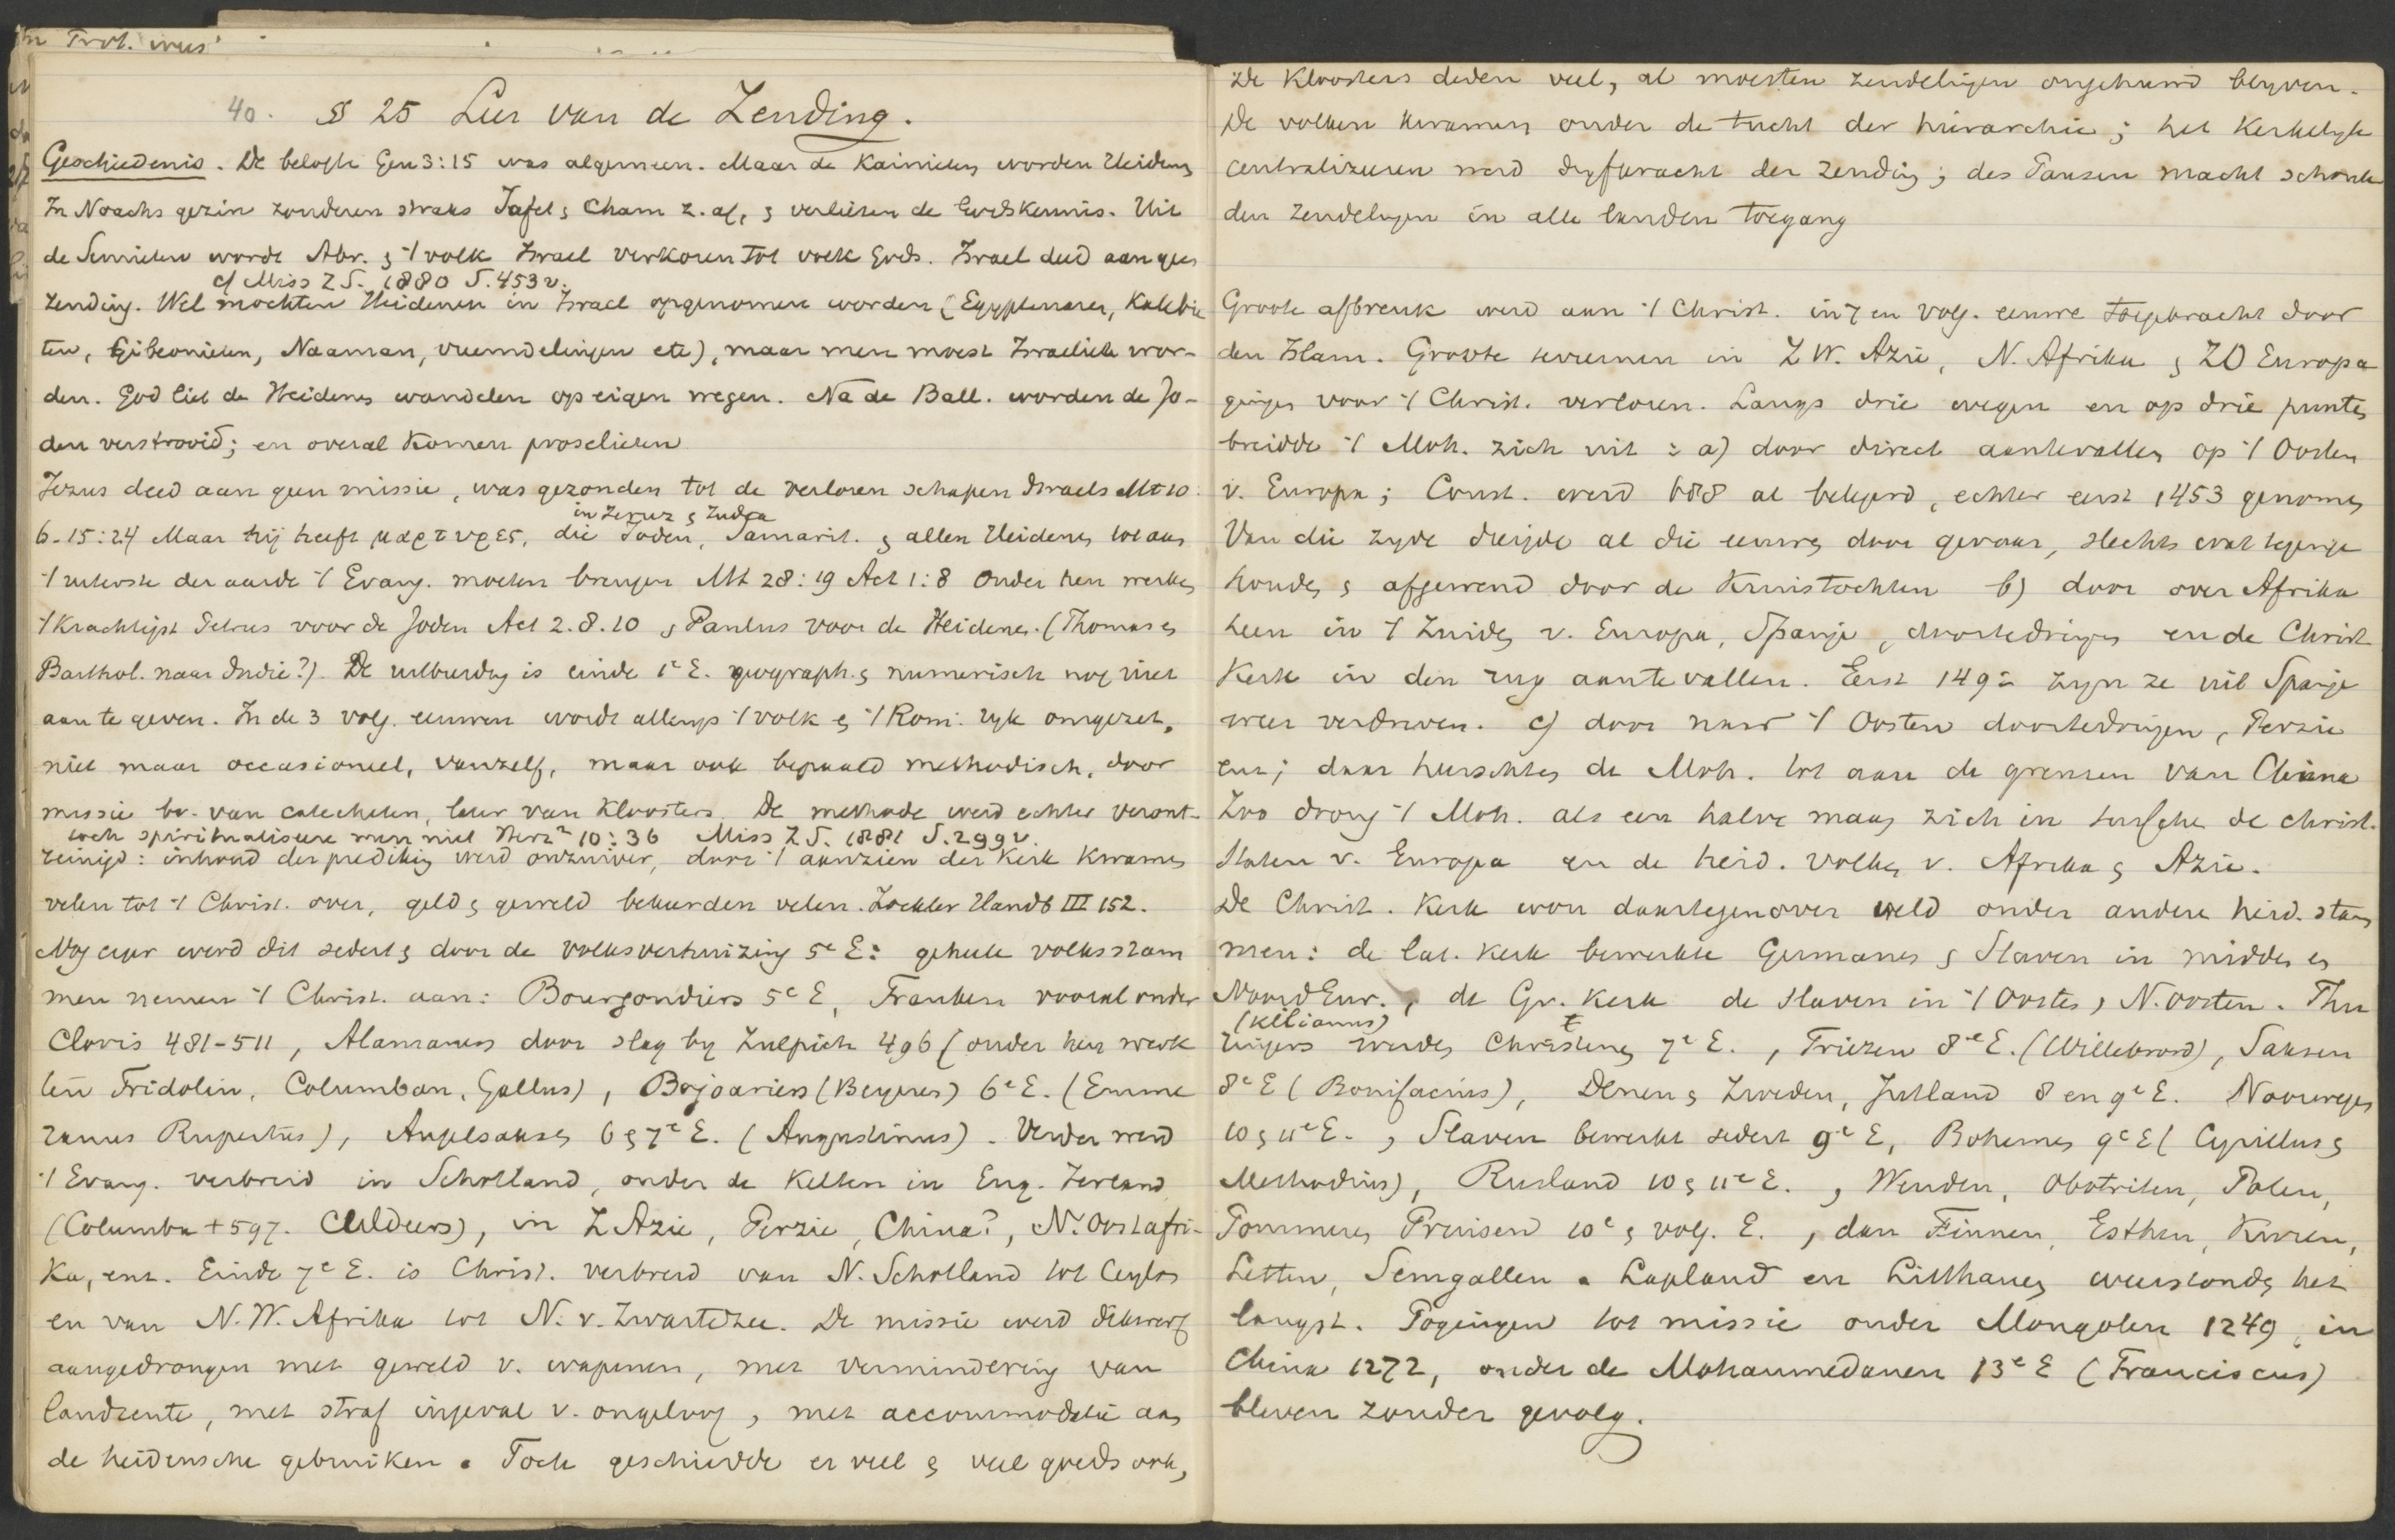 40. § 25 Leer van de Zending.
Geschiedenis. De belofte Gen 3:15 was algemeen. Maar de Kainieten worden Heidens
In Noachs gezin zonderen straks Jafet & Cham z. af, & verliezen de Godskennis. Uit
de Semieten wordt Abr. & 't volk Israel verkoren tot volk Gods. Israel deed aan geen
cf Miss Z S. 1880 S. 453 v.
zending. Wel mochten Heidenen in Israel opgenomen worden (Egyptenaren, Kalebie
ten, Gibeonieten, Naaman, vreemdelingen etc), maar men moest Israeliet wor-
den. God liet de Heidenen wandelen op eigen wegen. Na de Ball. worden de Jo-
den verstrooid; en overal komen proselieten
Jezus deed aan geen missie, was gezonden tot de verloren schapen Israels Mt 10:
in Jeruz & Judea
6. 15:24 Maar hij heeft μαρτυρες, die Joden, Samarit. & allen Heidenen tot aan
't uiterste der aarde 't Evang. moeten brengen Mt 28:19 Act 1:8 Onder hen werkten
't krachtigst Petrus voor de Joden Act 2. 8. 10 & Paulus voor de Heidenen. (Thomas en
Barthol. naar Indie?). De uitbreiding is einde 1e E. geograph. & numerisch nog niet
aan te geven. In de 3 volg. eeuwen wordt allengs 't volk & 't Rom. ryk omgezet,
niet maar occasioneel, vanzelf, maar ook bepaald methodisch, door
missie bv. van catecheten, later van Kloosters. De methode werd echter veront-
toch spiritualisere men niet Herz² 10:36 Miss Z S. 1881 S. 299 v.
reinigd: inhoud der prediking werd onzuiver, door 't aanzien der Kerk kwamen
velen tot 't Christ. over, geld & geweld bekeerden velen. Zockler Handb III 152.
Nog erger werd dit sedert & door de volksverhuizing 5e E: geheele volksstam
men nemen 't Christ. aan: Bourgondiers 5e E, Franken vooral onder
Clovis 481-511, Alamannen door slag by Zulpich 496 (onder hen werk
ten Fridolin, Columban, Gallus), Bojoariers (Beyeren) 6e E. (Emme
ranus Rupertus), Angelsaksen 6 & 7e E. (Augustinus). Verder werd
't Evang. verbreid in Schotland, onder de Kelten in Eng. Ierland
(Columba + 597. Culdeers), in Z Azie, Perzie, China?, N. Oostafri-
ka, enz. Einde 7e E. is Christ. verbreid van N. Schotland tot Ceylon
en van N. W. Afrika tot N. v. Zwarte Zee. De missie werd dikwerf
aangedrongen met geweld v. wapenen, met vermindering van
landrente, met straf ingeval v. ongeloof, met accommodatie aan
de heidensche gebruiken. Toch geschiedde er veel & veel goeds ook,
De Kloosters deden veel, al moesten zendelingen ongehuwd blyven.
De volken kwamen onder de tucht der hierarchie; het Kerkelyk
centralizeeren werd dryfkracht der zending; des Pausen macht schonk
den zendelingen in alle landen toegang
Groote afbreuk werd aan 't Christ. in 7 en volg. eeuwe toegebracht door
den Islam. Groote terreinen in Z W. Azie, N. Afrika & ZO Europa
gingen voor 't Christ. verloren. Langs drie wegen en op drie punten
breidde 't Moh. zich uit: a) door direct aantevallen op 't Oosten
v. Europa; Const. werd 688 al belegerd, echter eerst 1453 genomen
Van die zyde dreigde al die eeuwen door gevaar, slechts wat tegenge
houden & afgewend door de Kruistochten b) door over Afrika
heen in 't Zuiden v. Europa, Spanje, doortedringen en de Christ
Kerk in den rug aantevallen. Eerst 1492 zyn ze uit Spanje
weer verdreven. c) door naar 't Oosten doortedringen, Perzie
enz; daar heerschten de Moh. tot aan de grenzen van China
Zoo drong 't Moh. als een halve maan zich in tusschen de christ.
Staten v. Europa en de heid. volken v. Afrika & Azie.
De Christ. Kerk won daartegenover veld onder andere heid. stam
men: de lat. Kerk bewerkte Germanen & Slaven in midden en
Noord Eur., de Gr. Kerk de Slaven in 't Oosten, N. Oosten. Thu
(Kilianus)
ringers werden Christenen 7e E., Friezen 8e E. (Willebrord), Saksen
8e E (Bonifacius), Denen & Zweden, Jutland 8 en 9e E. Noorwegen
10 & 11e E., Slaven bewerkt sedert 9e E, Bohemen 9e E (Cyrillus &
Methodius), Rusland 10 & 11e E., Wenden, Obotriten, Polen,
Pommeren, Pruisen 10e & volg. E., dan Finnen, Esthen, Kuren,
Letten, Semgallen. Lapland en Litthauen weerstonden het
langst. Pogingen tot missie onder Mongolen 1249, in
China 1272, onder de Mohammedanen 13e E (Franciscus)
bleven zonder gevolg.